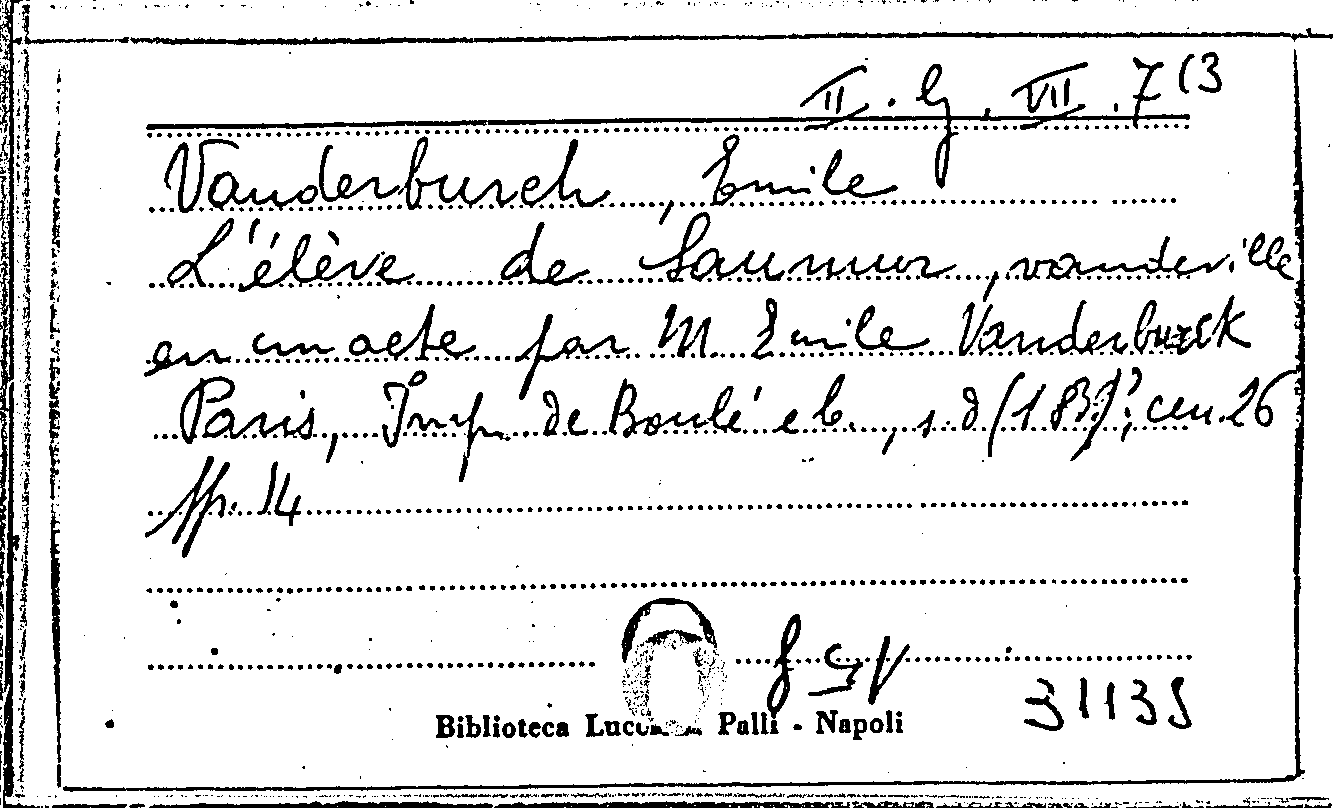 II. G. VII. 7(3
Vanderburch, Emile
L'élève de Saumur, vaudeville
en un acte par M. Emile Vanderburck
Paris, Imp. de Boulé e C., s.d (183.)?, cm. 26
pp. 14
Biblioteca Palli - Napoli
31135